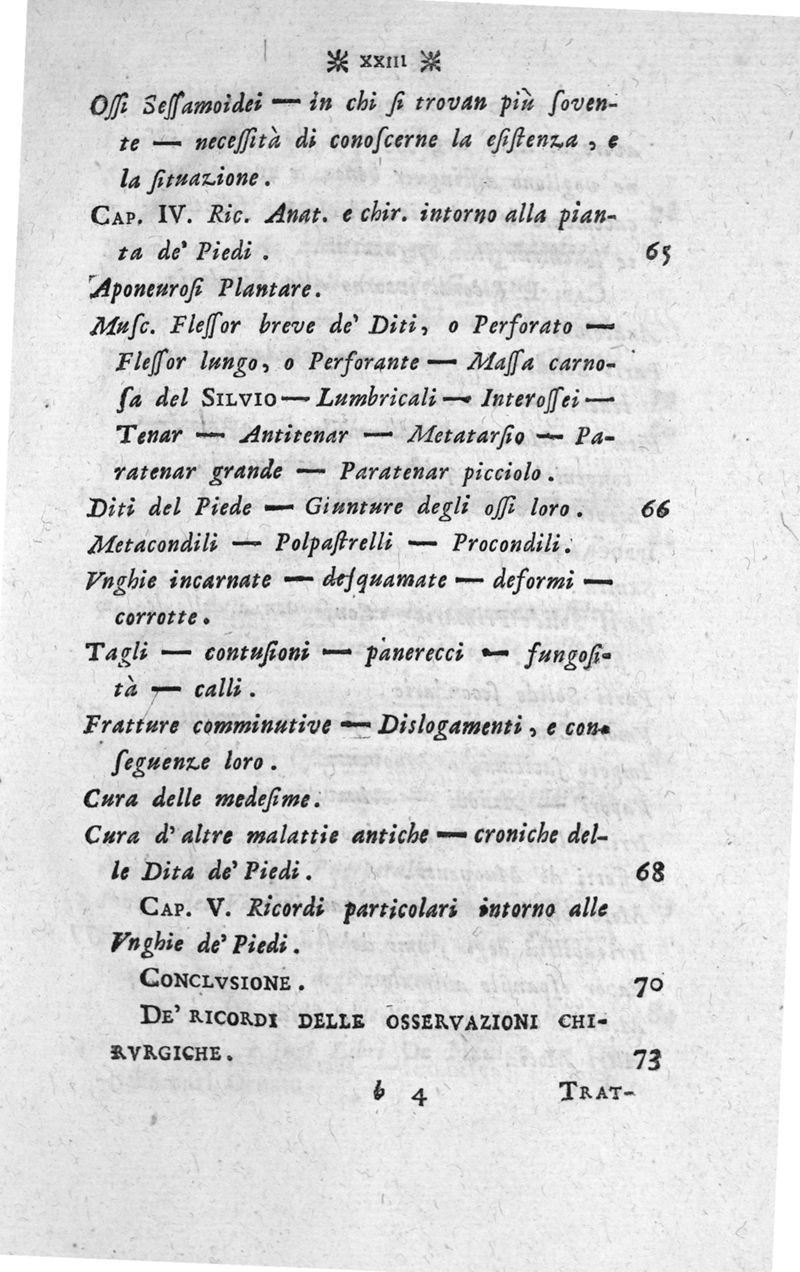 ※ XXIII ※
Oſſi Seſſamoidei — in chi ſi trovan più ſoven-
te — neceſſità di conoſcerne la eſiſtenza, e
la ſituazione.
CAP. IV. Ric. Anat. e chir. intorno alla pian-
ta de' Piedi. 65
Aponeuroſi Plantare.
Muſc. Fleſſor breve de' Diti, o Perforato —
Fleſſor lungo, o Perforante — Maſſa carno-
ſa del SILVIO — Lumbricali — Interoſſei —
Tenar — Antitenar — Metatarſio — Pa-
ratenar grande — Paratenar picciolo.
Diti del Piede — Giunture degli oſſi loro. 66
Metacondili — Polpaſtrelli — Procondili.
Vnghie incarnate — deſquamate — deformi —
corrotte.
Tagli — contuſioni — panerecci — fungoſi-
tà — calli.
Fratture comminutive — Dislogamenti, e con-
ſeguenze loro.
Cura delle medeſime.
Cura d' altre malattie antiche — croniche del-
le Dita de' Piedi. 68
CAP. V. Ricordi particolari intorno alle
Vnghie de' Piedi.
CONCLVSIONE. 70
DE' RICORDI DELLE OSSERVAZIONI CHI-
RVRGICHE. 73
b 4 TRAT-